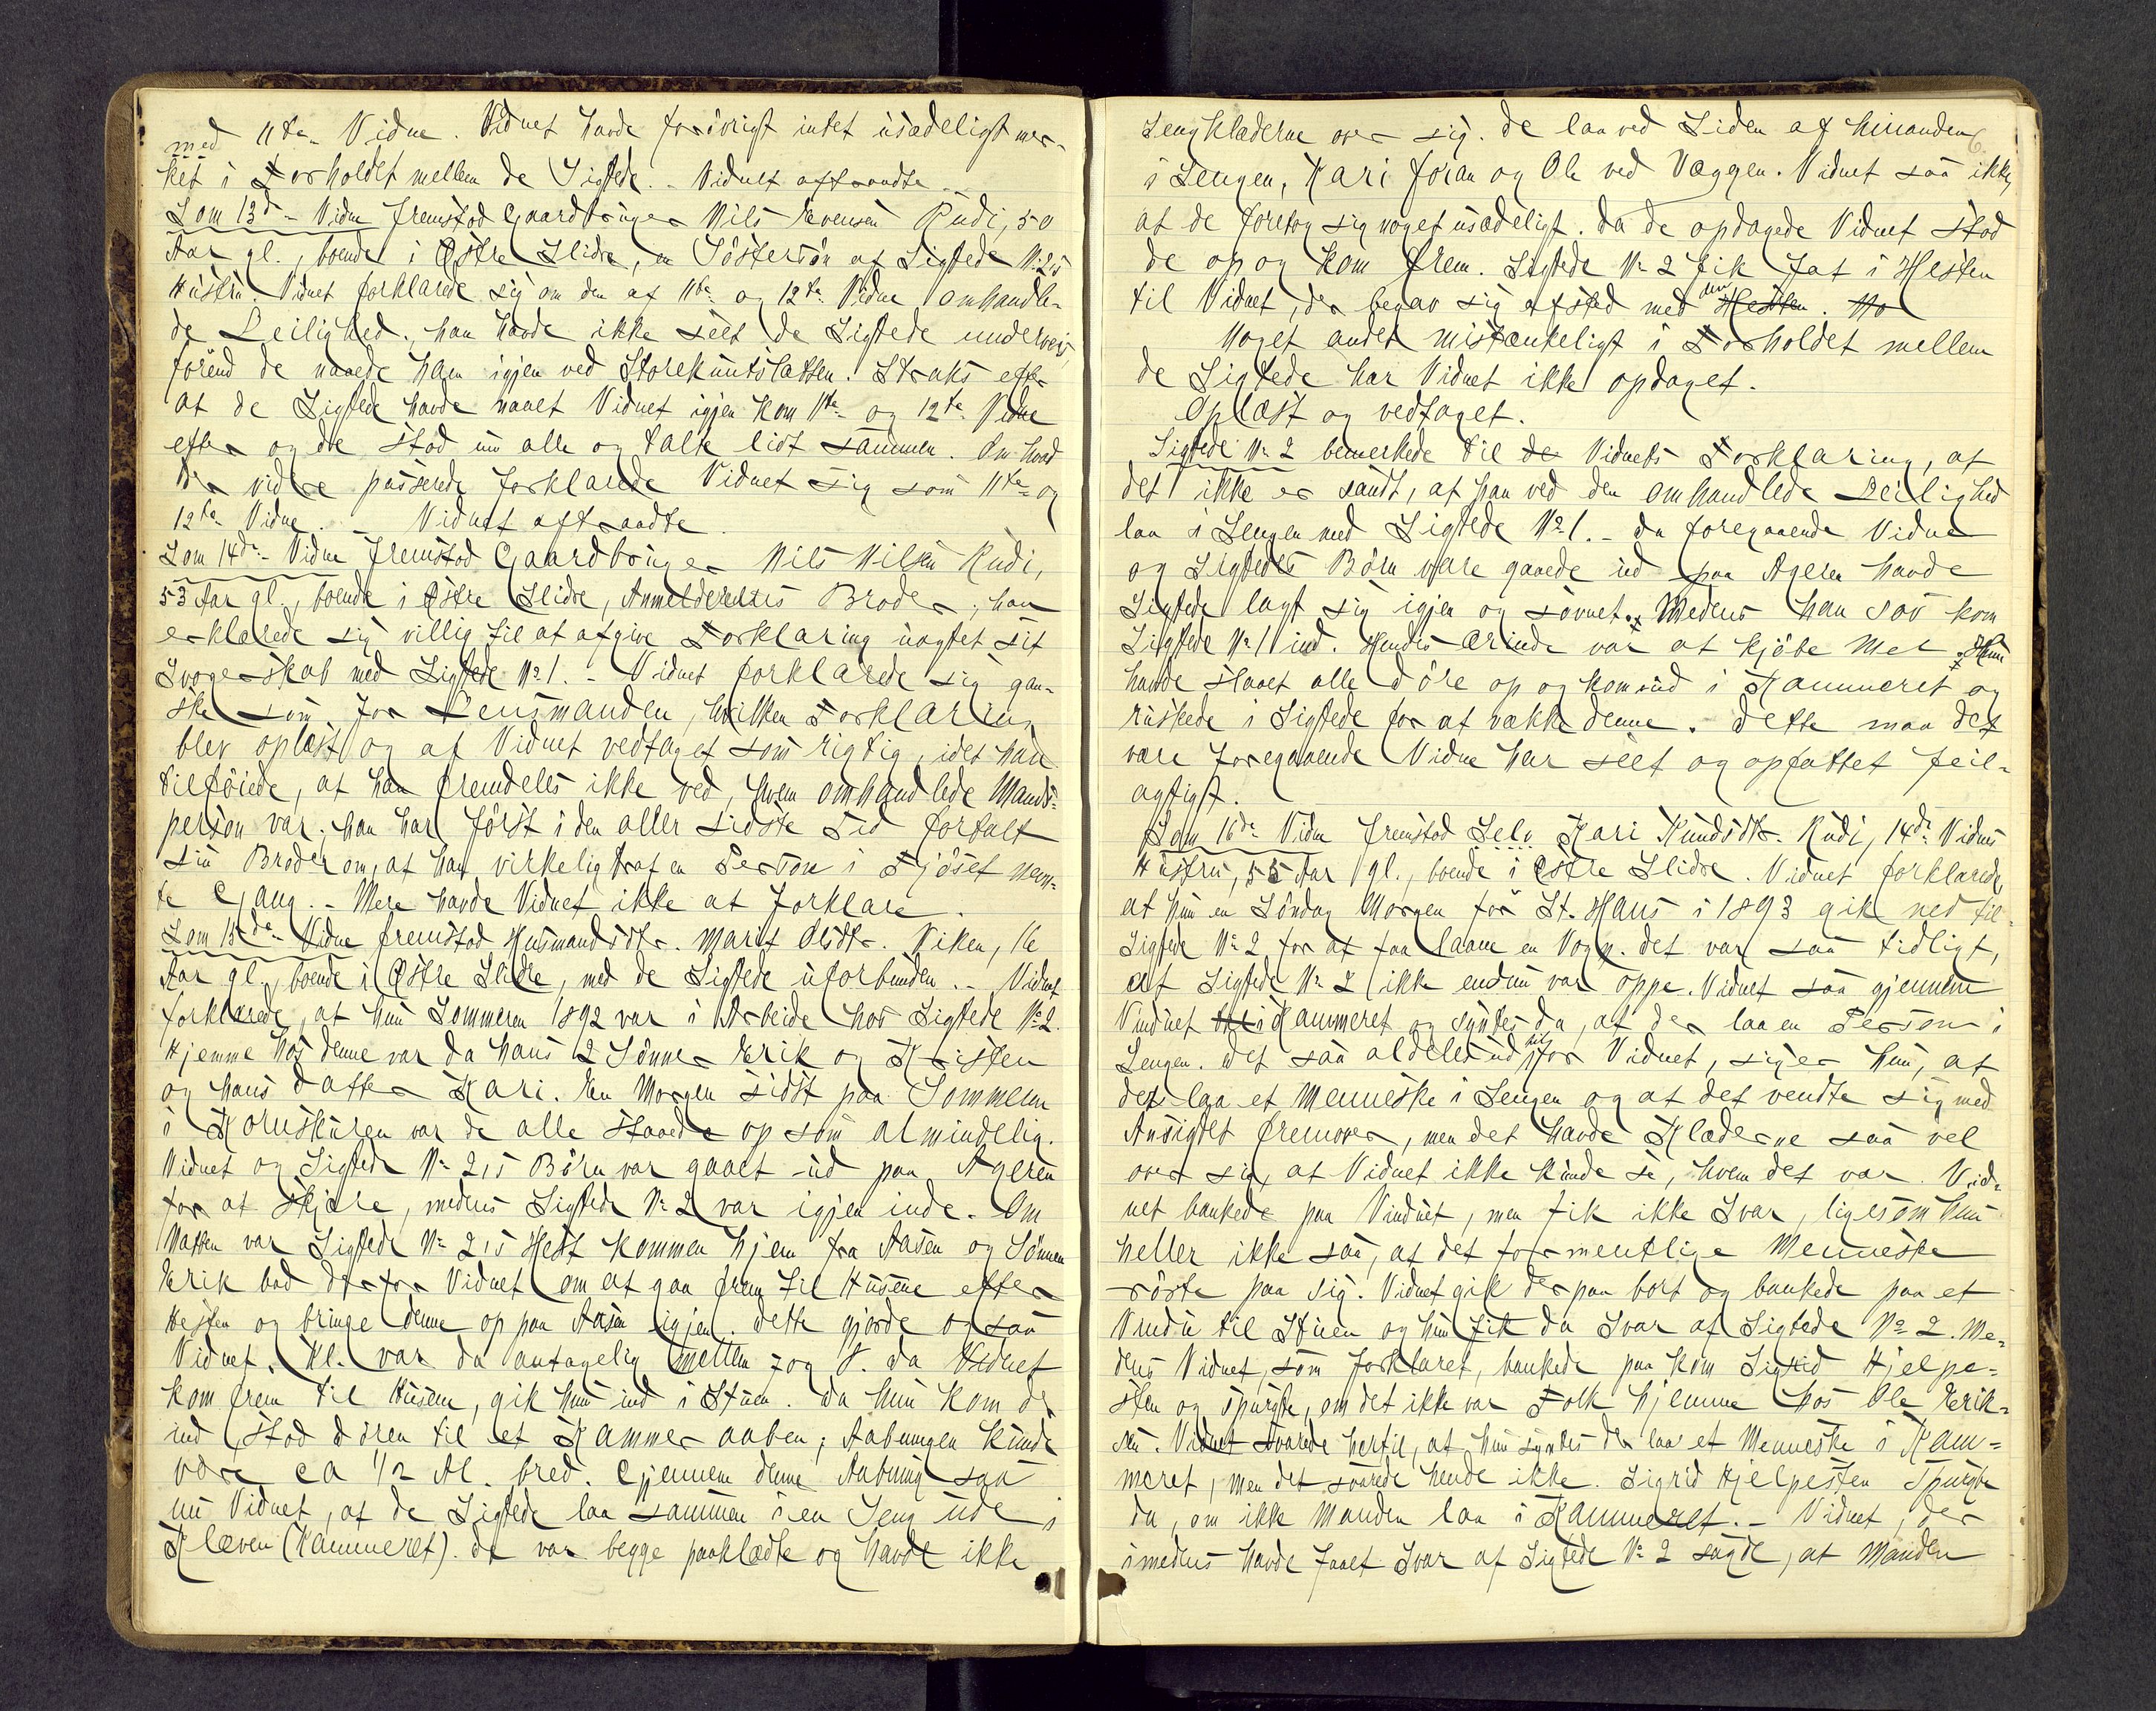 med 11te Vidne. Vidnet havde forövrigt intet usædeligt mer-
ket i Forholdet mellem de Sigtede. - Vidnet aftraadte.
Som 13de Vidne fremstod Gaardbruger Nils Evensen Rudi, 50
Aar gl., boende i Østre Slidre, en Söstersön af Sigtede No 2's
Hustru. Vidnet forklarede sig om den af 11te og 12te Vidne omhandle-
de Leilighed. han havde ikke seet de Sigtede underveis,
förend de naaede ham igjen ved Storekuutslatten. Straks efter
at de Sigtede havde naaet Vidnet igjen kom 11te og 12te Vidne
efter og de stod nu alle og talte lidt sammen. Om hvad
der videre passerede forklarede Vidnet sig som 11te og
12te Vidne. - Vidnet aftraadte.
Som 14de Vidne fremstod Gaardbruger Nils Nilsen Rudi,
53 Aar gl., boende i Østre Slidre, Anmelderens Broder; han
erklærede sig villig til at afgive Forklaring uagtet sit
Svogerskab med Sigtede No 1. - Vidnet forklarede sig gan-
ske som for Lensmanden, hvilken Forklaring
blev oplæst og af Vidnet vedtaget som rigtig, idet han
tilföiede, at han fremdeles ikke ved, hvem omhandlede Mands-
person var; han har först i den aller sidste Tid fortalt
sin Broder om, at han virkelig traf en Person i Fjöset nevn-
te Gang. - Mere havde Vidnet ikke at forklare.
Som 15de Vidne fremstod Husmandsdtr. Marit Olsdtr. Viken, 16
Aar gl., boende i Østre Slidre, med de Sigtede uforbunden. - Vidnet
forklarede, at hun Sommeren 1892 var i Arbeide hos Sigtede No 2.
Hjemme hos denne var da hans 2 Sönner Erik og Kristen
og hans datter Kari. En Morgen sidst paa Sommeren
i Kornskuren var de alle staaede op som almindelig.
Vidnet og Sigtede No 2's Börn var gaaet ud paa Ageren
for at skjære, medens Sigtede No 2 var igjen inde. Om
Natten var Sigtede No 2's Hest kommen hjem fra Aasen og Sönnen
Erik bad derfor Vidnet om at gaa frem til Husene efter
Hesten og bringe denne op paa Aasen igjen. dette gjorde ogsaa
Vidnet. Kl. var da antagelig mellem 7 og 8. da Vidnet
kom frem til Husene, gik hun ind i Stuen. da hun kom der
ind stod dören til et Kammer aaben; Aabningen kunde
være ca 1/2 Al. bred. Gjennem denne Aabning saa
nu Vidnet, at de Sigtede laa sammen i en Seng ude i
Kleven (Kammeret). de var begge paaklædte og havde ikke
Sengklæderne over sig. de laa ved Siden af hinanden
i Sengen, Kari foran og Ole ved Væggen. Vidnet saa ikke,
at de foretog sig noget usædeligt. da de opdagede Vidnet stod
de op og kom frem. Sigtede No 2 fik fat i Hesten
til Vidnet, der begav sig afsted med den Hesten. No
Noget andet mistænkeligt i Forholdet mellem
de Sigtede har Vidnet ikke opdaget.
Oplæst og vedtaget.
Sigtede No 2 bemerkede til de Vidnets Forklaring, at
det ikke er sandt, at han ved den omhandlede Leilighed
laa i Sengen med Sigtede No 1. - da foregaaende Vidne
og Sigtedes Börn vare gaaede ud paa Ageren havde
Sigtede lagt sig igjen og sovnet. Medens han sov kom
Sigtede No 1 ind. Hendes ærinde var at kjöbe Mel. Hun
havde slaaet alle döre op og kom ud i Kammeret og
ruskede i Sigtede for at vække denne. dette maa det
være foregaaende Vidne har seet og opfattet feil-
agtigt.
Som 16de Vidne fremstod Selv Kari Knudsdtr. Rudi, 14de Vidnes
Hustru, 55 Aar gl., boende i Østre Slidre. Vidnet forklarede,
at hun en Söndag Morgen för St. Hans i 1893 gik ned til
Sigtede No 2 for at faa laane en Vogn. det var saa tidligt,
at Sigtede No 2 ikke endnu var oppe. Vidnet saa gjennem
Vinduet i Kammeret og syntes da, at der laa en Person i
Sengen. det saa aldeles ud til for Vidnet, siger hun, at
det laa et Menneske i Sengen og at det vendte sig med
Ansigtet fremover, men det havde Klæderne saa vel
over sig at Vidnet ikke kunde se, hvem det var. Vid-
net bankede paa Vinduet, men fik ikke Svar, ligesom hun
heller ikke saa, at det formentlige Menneske
rörte paa sig. Vidnet gik derpaa bort og bankede paa et
Vindu til Stuen og hun fik da Svar af Sigtede No 2. Me-
dens Vidnet, som forklaret, bankede paa kom Sigrid Hjelpe-
sten og spurgte, om det ikke var Folk hjemme hos Ole Erik-
sen. Vidnet svarede hertil, at hun syntes der laa et Menneske i Kam-
meret, men det svarede hende ikke. Sigrid Hjelpesten spurgte
da, om ikke Manden laa i Kammeret. - Vidnet, der
imedens havde faaet Svar af Sigtede No 2 sagde, at Manden